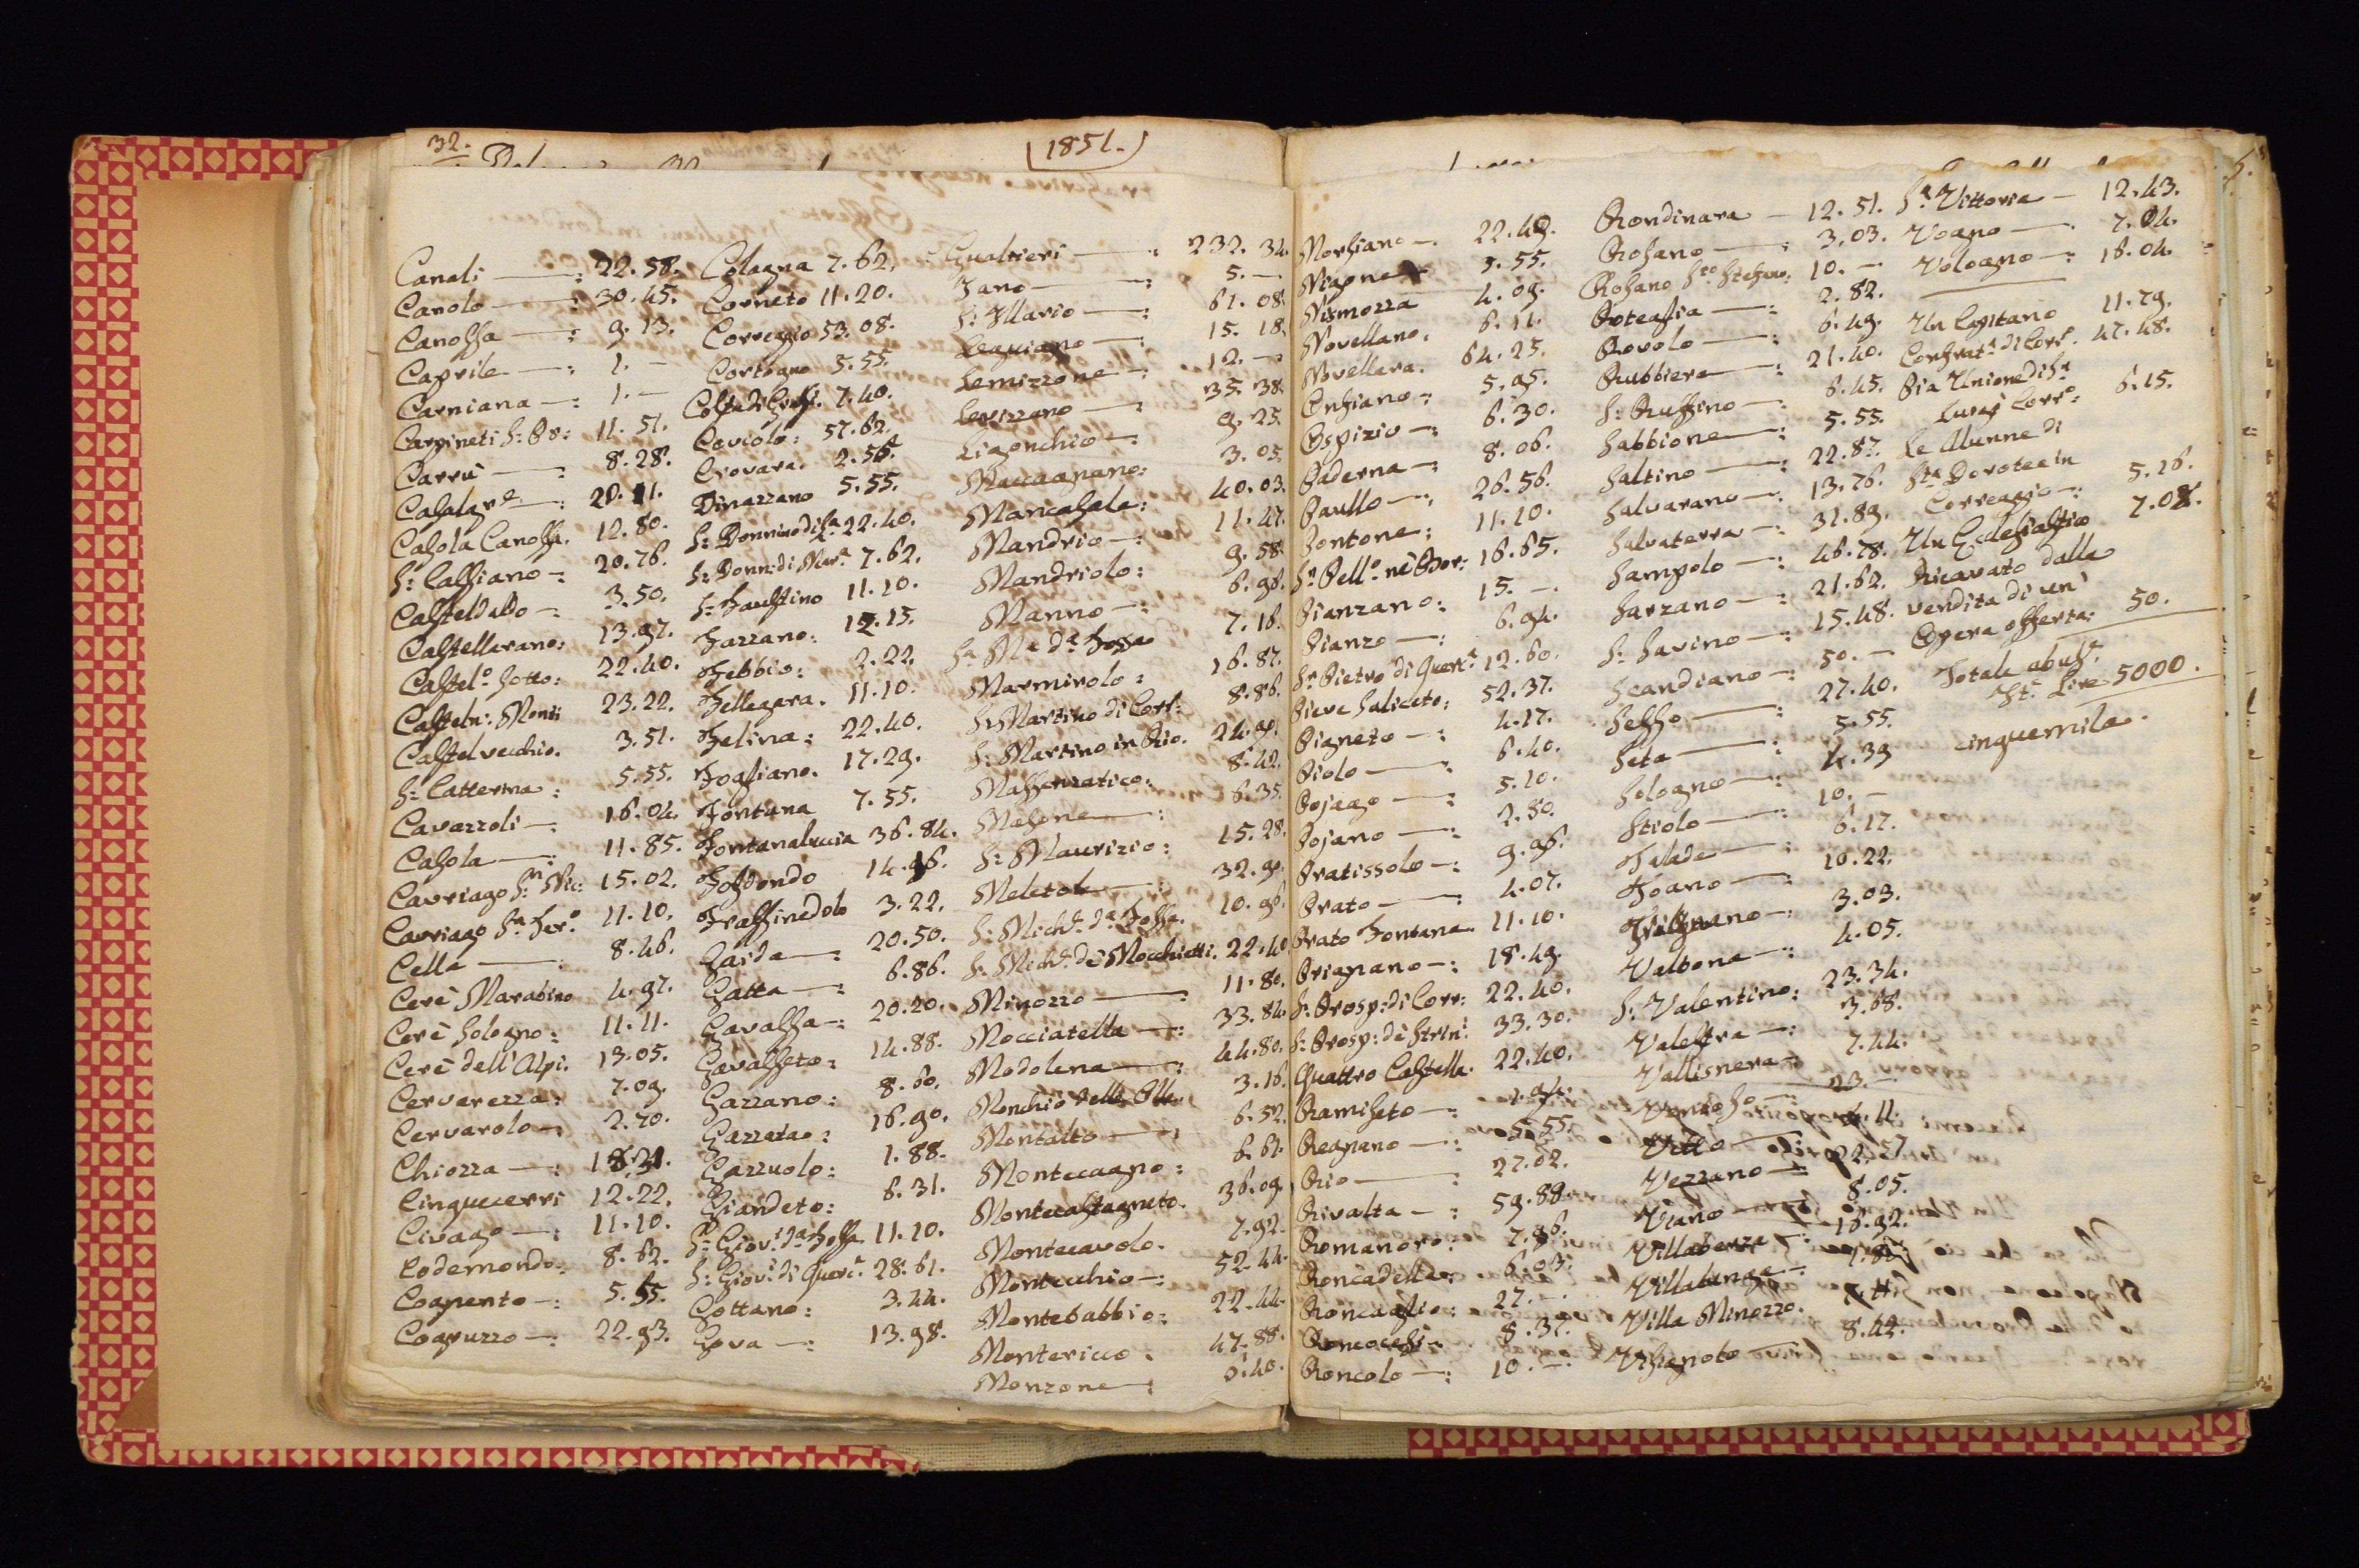 32.
(1851.)
Canali —: 22.58.
Canolo —: 30.45.
Canossa —: 9.13.
Caprile —: 1. —
Carniana —: 1. —
Carpineti S: Pr: 11.51.
Carrù —: 8.28.
Casalgrde —: 20.11.
Casola Canossa. 12.80.
S: Cassiano —: 20.76.
Casteldaldo —: 3.50.
Castellarano: 13.97.
Castelo Sotto: 22.40.
Casteln: Monti 23.22.
Castelvecchio. 3.51.
S: Catterina: 5.55.
Cavazzoli —: 16.04.
Casola —: 11.85.
Cavriago Sn Nic: 15.02.
Cavriago Sn Tero 11.10.
Cella —: 8.46.
Cerè Marabino 4.97.
Cerè Sologno: 11.11.
Cerè dell'Alpi. 13.05.
Cervarezza: 7.09.
Cervarolo —: 2.70.
Chiozza —:
Cinquecerri 12.22.
Civago —: 11.10.
Codemondo: 8.62.
Cognento —: 5.55.
Cogruzzo —: 22.93.
Colagna 7.62.
Corneto 11.20.
Correggio 53.08.
Cortogno 5.55.
Costa di Grassi. 7.40.
Coviolo: 57.62.
Crovara. 2.56.
Dinazzano 5.55.
22.40.
S: Donn: di Mar.a 7.62.
S: Faustino 11.10.
Fazzano: 12.15.
Febbio: 2.22.
Fellegara. 11.10.
Felina: 22.40.
Fogliano. 17.29.
Fontana 7.55.
Fontanaluccia 36.84.
Fosdondo 14.96.
Frassinedolo 3.22.
Gaida —: 20.50.
Gatta —: 6.86.
Gavassa —: 20.20.
Gavasseto: 14.88.
Gazzano: 8.60.
Gazzatao: 16.90.
Gazzuolo: 1.88.
Giandeto: 6.31.
Sn Giov.i da Fossa 11.10.
S: Giov.i di Querc.a 28.61.
Gottano: 3.44.
Gova —: 13.98.
Gualtieri —: 232.34.
Jano —: 5. —
S: Illario —: 61.08.
Leguigno —: 15.18.
Lemizzone —: 12. —
Levizzano —: 35.38.
Ligonchio —: 9.25.
Maccagnano: 3.05.
Mancasale: 40.03.
Mandrio —: 11.47.
Mandriolo: 9.58.
Manno —: 6.96.
Sa Ma da Fossa 7.16.
Marmirolo: 16.87.
S: Martino di Corr: 8.86.
S: Martino in Rio. 24.90.
Massenzatico: 8.42.
Masone —: 6.35.
S: Maurizio: 15.28.
Meletole —: 32.90.
S: Mich.e da Fossa. 10.96.
S: Mich.e de Mocchietti. 22.40.
Minozzo —: 11.80.
Mocciatella —: 33.84.
Modolena —: 44.80.
Monchio delle Olle. 3.16.
Montalto —: 6.52.
Montecagno: 6.61.
Montecastagneto. 36.09.
Montecavolo. 7.92.
Montecchio —: 52.44.
Montebabbio: 22.44.
Montericco. 47.88.
Monzone —: 6.40.
Morsiano —. 22.49.
Nigone 5.55.
Nismozza 4.09.
Novellano. 6.11.
Novellara. 64.25.
Onfiano —: 5.95.
Ospizio —: 6.30.
Paderna —: 8.06.
Paullo —: 26.56.
Pontone: 11.10.
Sn Pell.o nè Bor: 16.65.
Pianzano: 15. —
Pianzo —: 6.94.
Sn Pietro di Querc.a 12.60.
Pieve Saliceto: 52.37.
Pigneto —: 4.17.
Piolo —: 6.40.
Pojago —: 5.10.
Pojano —: 2.80.
Pratissolo —: 9.96.
Prato —: 4.07.
Prato Fontana 11.10.
Prignano —: 18.49.
S: Prosp: di Corr: 22.40.
S: Prosp: de Strin.i 33.30.
Quattro Castella. 22.40.
Ramiseto —:
Regnano —: 5.55.
Rio —: 27.02.
Rivalta —: 59.88.
Romanoro: 7.96.
Roncadella: 6.03.
Roncaglio: 27. —
Roncocesi —. 8.37.
Roncolo —: 10. —
Rondinara — 12.51.
Rosano —: 3.03.
Rosano Sto Stefano. 10. —
Roteglia —: 2.82.
Rovolo —: 6.49.
Rubbiera —: 21.40.
S: Ruffino —: 6.45.
Sabbione —: 5.55.
Saltino —: 22.87.
Salvarano —: 13.76.
Salvaterra —: 31.89.
Sampolo —: 46.78.
Sarzano —: 21.62.
S: Savino —: 15.48.
Scandiano —: 50. —
Sesso —: 27.40.
Seta —: 5.55.
Sologno —: 4.39
Stiolo —: 10. —
Talada —: 6.17.
Toano —: 10.22.
3.03.
Valbona —: 4.05.
S: Valentino: 23.34.
Valestra —: 3.68.
Vallisnera —: 7.44.
23. —
Vetto
Vezzano —: 22.37
Viano — 8.05.
Villaberza —: 16.92.
Villalunga —:
Villa Minozzo.
Visignolo — 8.42.
Sa Vittoria — 12.43.
Vogno —. 7.04.
Vologno —: 16.04.
Un Capitano 11.79.
Confrat.a di Corr.o 47.48.
Pia Unione di Sn
Luigi Corr.o: 6.15.
Le Alunne di
Sta Dorotea in
Correggio —: 5.26.
Un Ecclesiastico 7.08.
Ricavato dalla
vendita di un'
Opera offerta: 50.
Totale abus.o
It.e Lire 5000.
cinquemila.